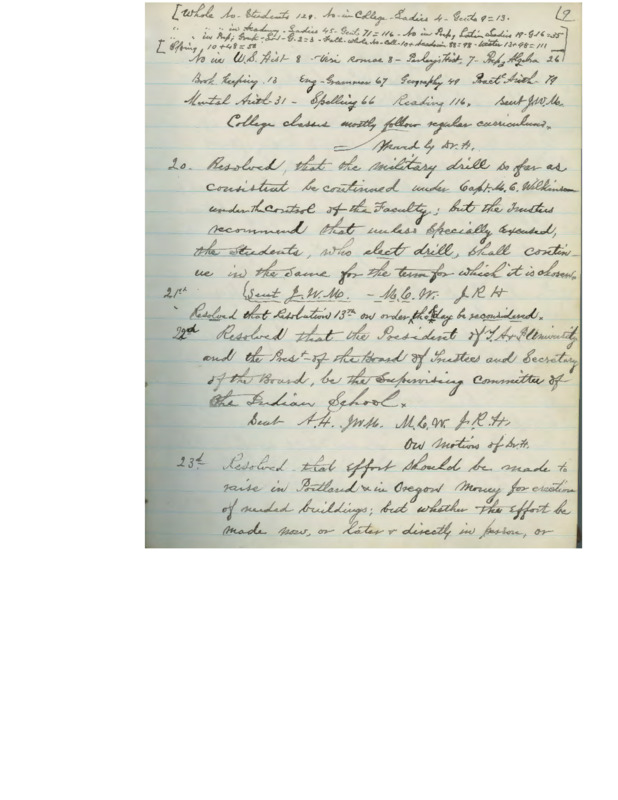 [Whole No. Students 129. No in College Ladies 4 - Gents 9 = 13. [9
" " " in Academy - Ladies 45 - Gents 71 = 116 - No in Prep, Latin Ladies 19 - G 16 = 35
" " in Prep, Greek - L 1 - G. 2 = 3 - Fall whole No. Coll. 10 + Academic 88 = 98 - Winter 13 + 98 = 111
[Spring, 10 + 48 = 58
No in U.S. Hist 8 - Viri Romae 8 - Hist. 7 - Prep, Algebra 26
Book Keeping. 13 Eng-Grammar 67 Geography 49 Pract Arith. 79
Mental Arith. 31 - Spelling 66 Reading 116. Sent J.W.M.
College classes mostly follow regular curriculum.
Moved by Dr. H.
20. Resolved, that the military drill so far as
consistent be continued under Capt. M. C. Wilkinson
under the Control of the Faculty; but the Trustees
recommend that unless specially excused,
the Students, who elect drill, shall contin-
ue in the same for the term for which it is chosen.
21st (Sent J.W.M. - M.C.W. J R H
Resolved that Resolution 13th on order of the day be reconsidered.
22d Resolved that the President of T. A. & P. University
and the Prest of the Board of Trustees and Secretary
of the Board, be the Supervising Committee of
the Indian School.
Sent A.H. J.W.M. M.C.W. J.R.H.
On motions of Dr. H.
23d Resolved that effort should be made to
raise in Portland & in Oregon Money for erection
of needed buildings; but whether the effort be
made now, or later & directly in person, or